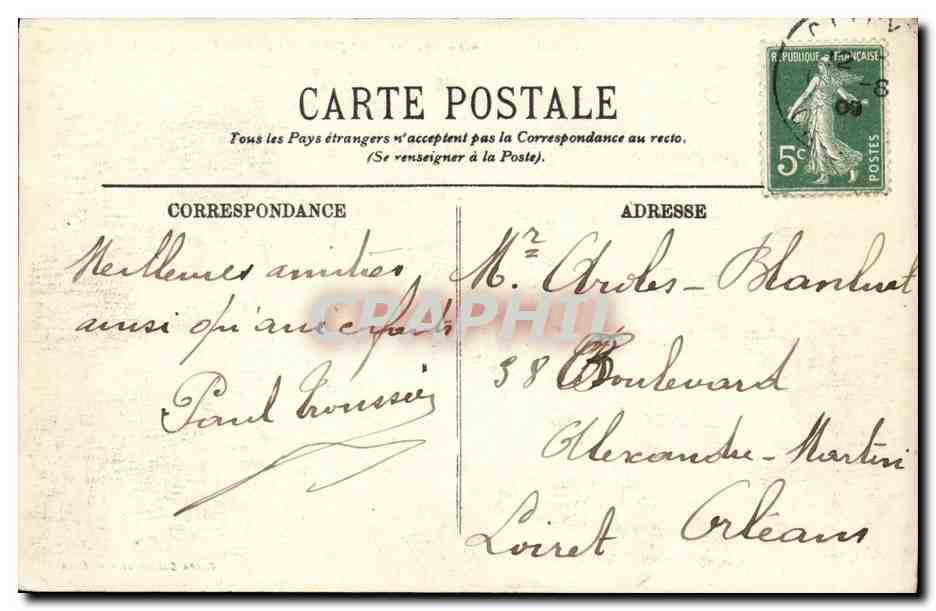 CARTE POSTALE
Tous les Pays étrangers n'acceptent pas la Correspondance au recto.
(Se renseigner à la Poste).
REPUBLIQUE FRANÇAISE
5c
POSTES
12 -8
09
CORRESPONDANCE
ADRESSE
Meilleures amitiés
ainsi qu'aux enfants
Paul Troussier
Mr. Blanluet
38 Boulevard
Alexandre-Martin
Orléans
Loiret
CPAPHIL